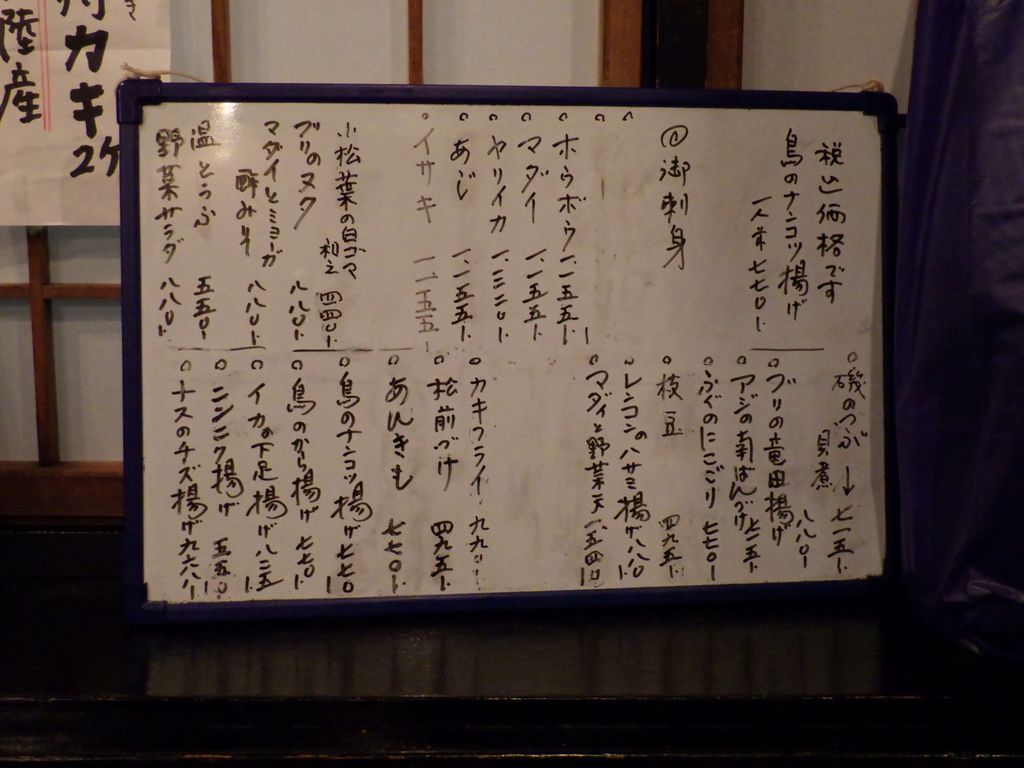 税込価格です
鳥のナンコツ揚げ
一人前 七七〇
@御刺身
ホウボウ 一、一五五
マダイ 一、一五五
ヤリイカ 一、三二〇
あじ 一、一五五
イサキ 一、一五五
小松菜の白ゴマ
和え 四四〇
ブリのヌタ 八八〇
マダイとミョーガ
酢みそ 八八〇
温とうふ 五五〇
野菜サラダ 八八〇
磯のつぶ
貝煮
七一五
ブリの竜田揚げ 八八〇
アジの南ばんづけ 七一五
ふぐのにこごり 七七〇
枝豆 四九五
レンコンのハサミ揚げ 八八〇
マダイと野菜天 一、五四〇
カキフライ 九九〇
松前づけ 四九五
あんきも 七七〇
鳥のナンコツ揚げ 七七〇
鳥のから揚げ 七七〇
イカの下足揚げ 八二五
ニンニク揚げ 五五〇
ナスのチーズ揚げ 九六八
カキ
2ケ
陸産